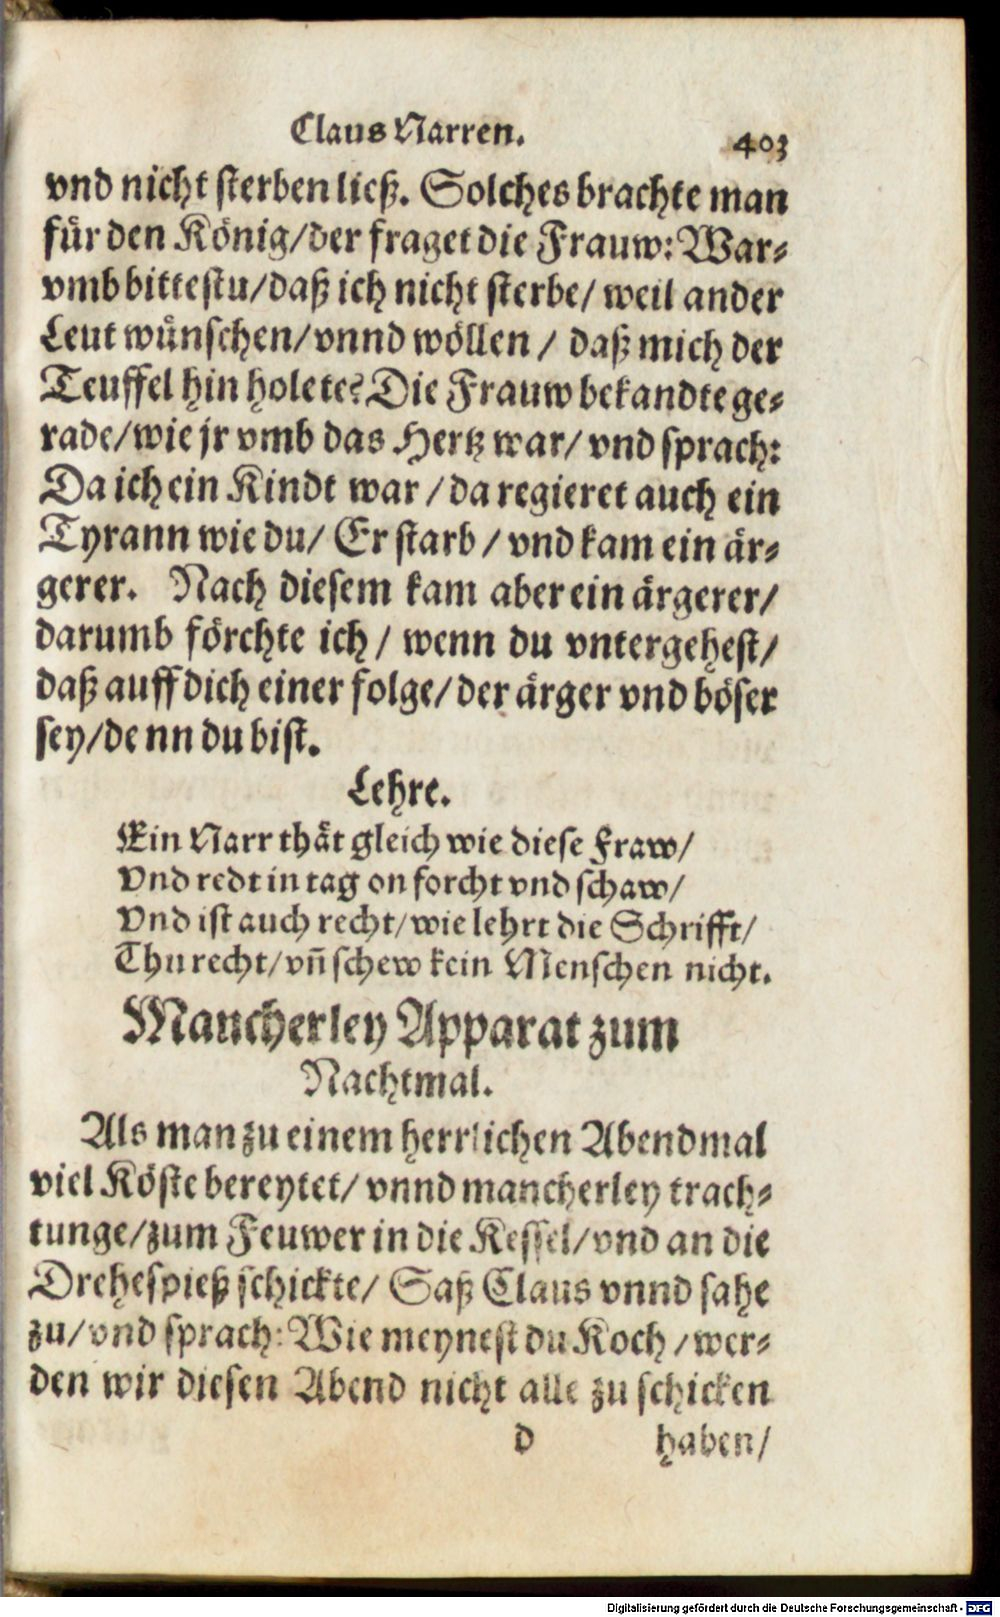 Claus Narren. 403
vnd nicht sterben ließ. Solches brachte man
für den König/der fraget die Frauw: War-
vmb bittestu/daß ich nicht sterbe/ weil ander
Leut wünschen/vnnd wöllen / daß mich der
Teuffel hin holete? Die Frauw bekandte ge-
rade/wie jr vmb das Hertz war/ vnd sprach:
Da ich ein Kindt war /da regieret auch ein
Tyrann wie du/ Er starb / vnd kam ein är-
gerer. Nach diesem kam aber ein ärgerer/
darumb förchte ich / wenn du vntergehest/
daß auff dich einer folge/der ärger vnd böser
sey/denn du bist.
Lehre.
Ein Narr thät gleich wie diese Fraw/
Vnd redt in tag on forcht vnd schaw/
Vnd ist auch recht/wie lehrt die Schrifft/
Thu recht/vñ schew kein Menschen nicht.
Mancherley Apparat zum
Nachtmal.
Als man zu einem herrlichen Abendmal
viel Köste bereytet/ vnnd mancherley trach-
tunge/zum Feuwer in die Kessel/vnd an die
Drehespieß schickte/ Saß Claus vnnd sahe
zu/vnd sprach: Wie meynest du Koch /wer-
den wir diesen Abend nicht alle zu schicken
d haben/
Digitalisierung gefördert durch die Deutsche Forschungsgemeinschaft - DFG